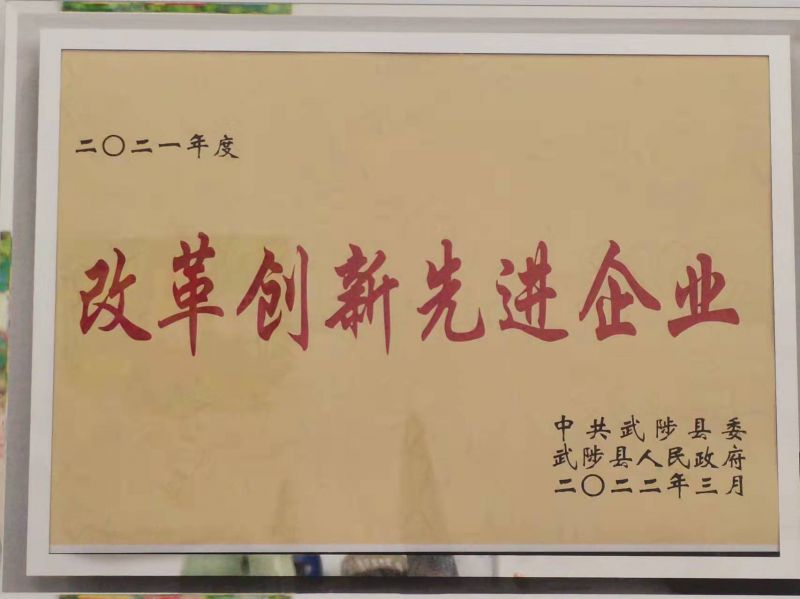 二〇二一年度
改革创新先进企业
中共武陟县委
武陟县人民政府
二〇二二年三月